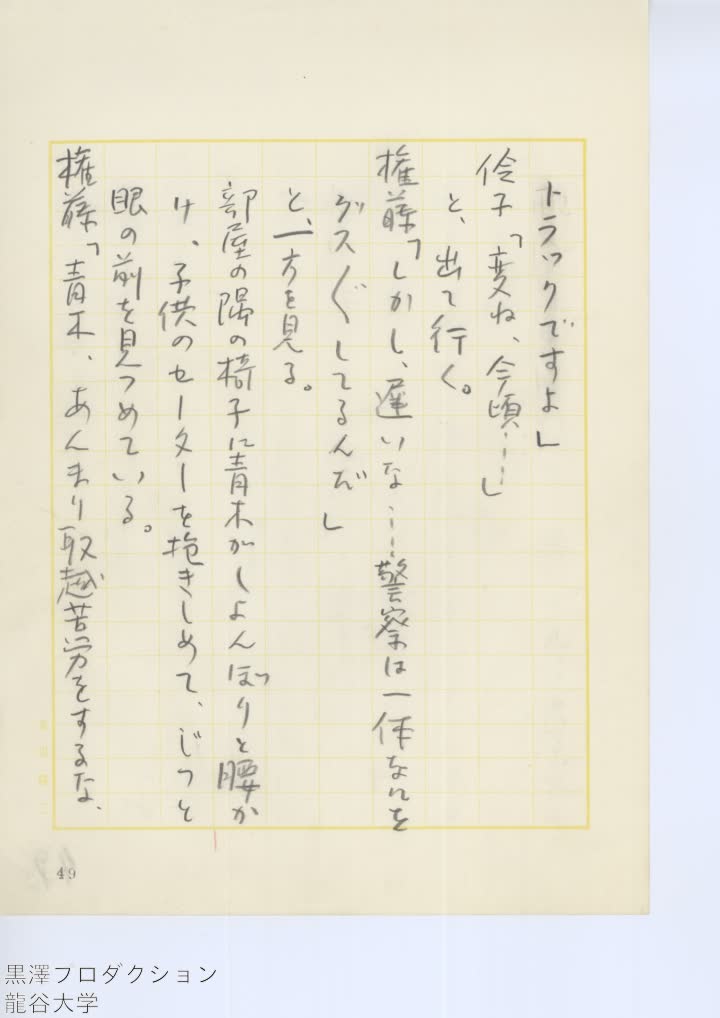 トラックですよ」
伶子「変ね、今頃……」
と、出て行く。
権藤「しかし、遅いな……警察は一体なにを
グス〱してるんだ」
と、一方を見る。
部屋の隅の椅子に青木がしょんぼりと腰か
け、子供のセーターを抱きしめて、じっと
眼の前を見つめている。
権藤「青木、あんまり取越苦労をするな、
49
黒澤プロダクション
龍谷大学